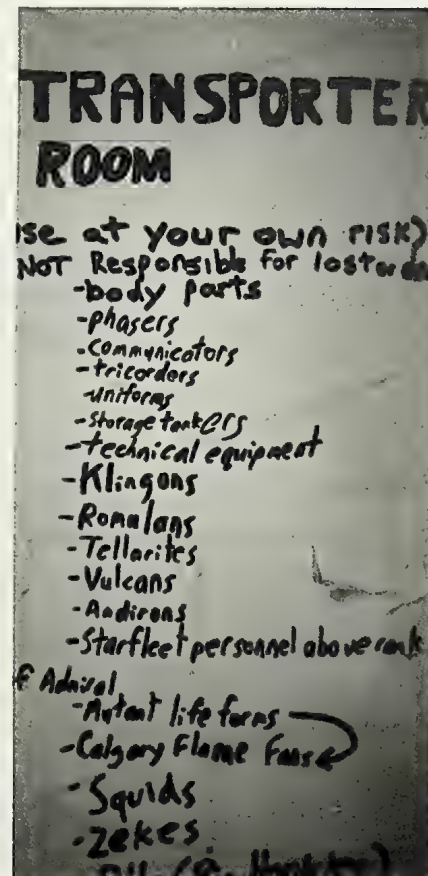 TRANSPORTER
ROOM
ise at your own risk)
NOT Responsible for lost
-body parts
-phasers
-communicators
-tricorders
-uniforms
-storage tankers
-technical equipment
-Klingons
-Romulans
-Tellarites
-Vulcans
-Andirons
-Starfleet personnel above rank
f Admiral
life forms
-Calgary Flame Fans
-Squids
-Zekes